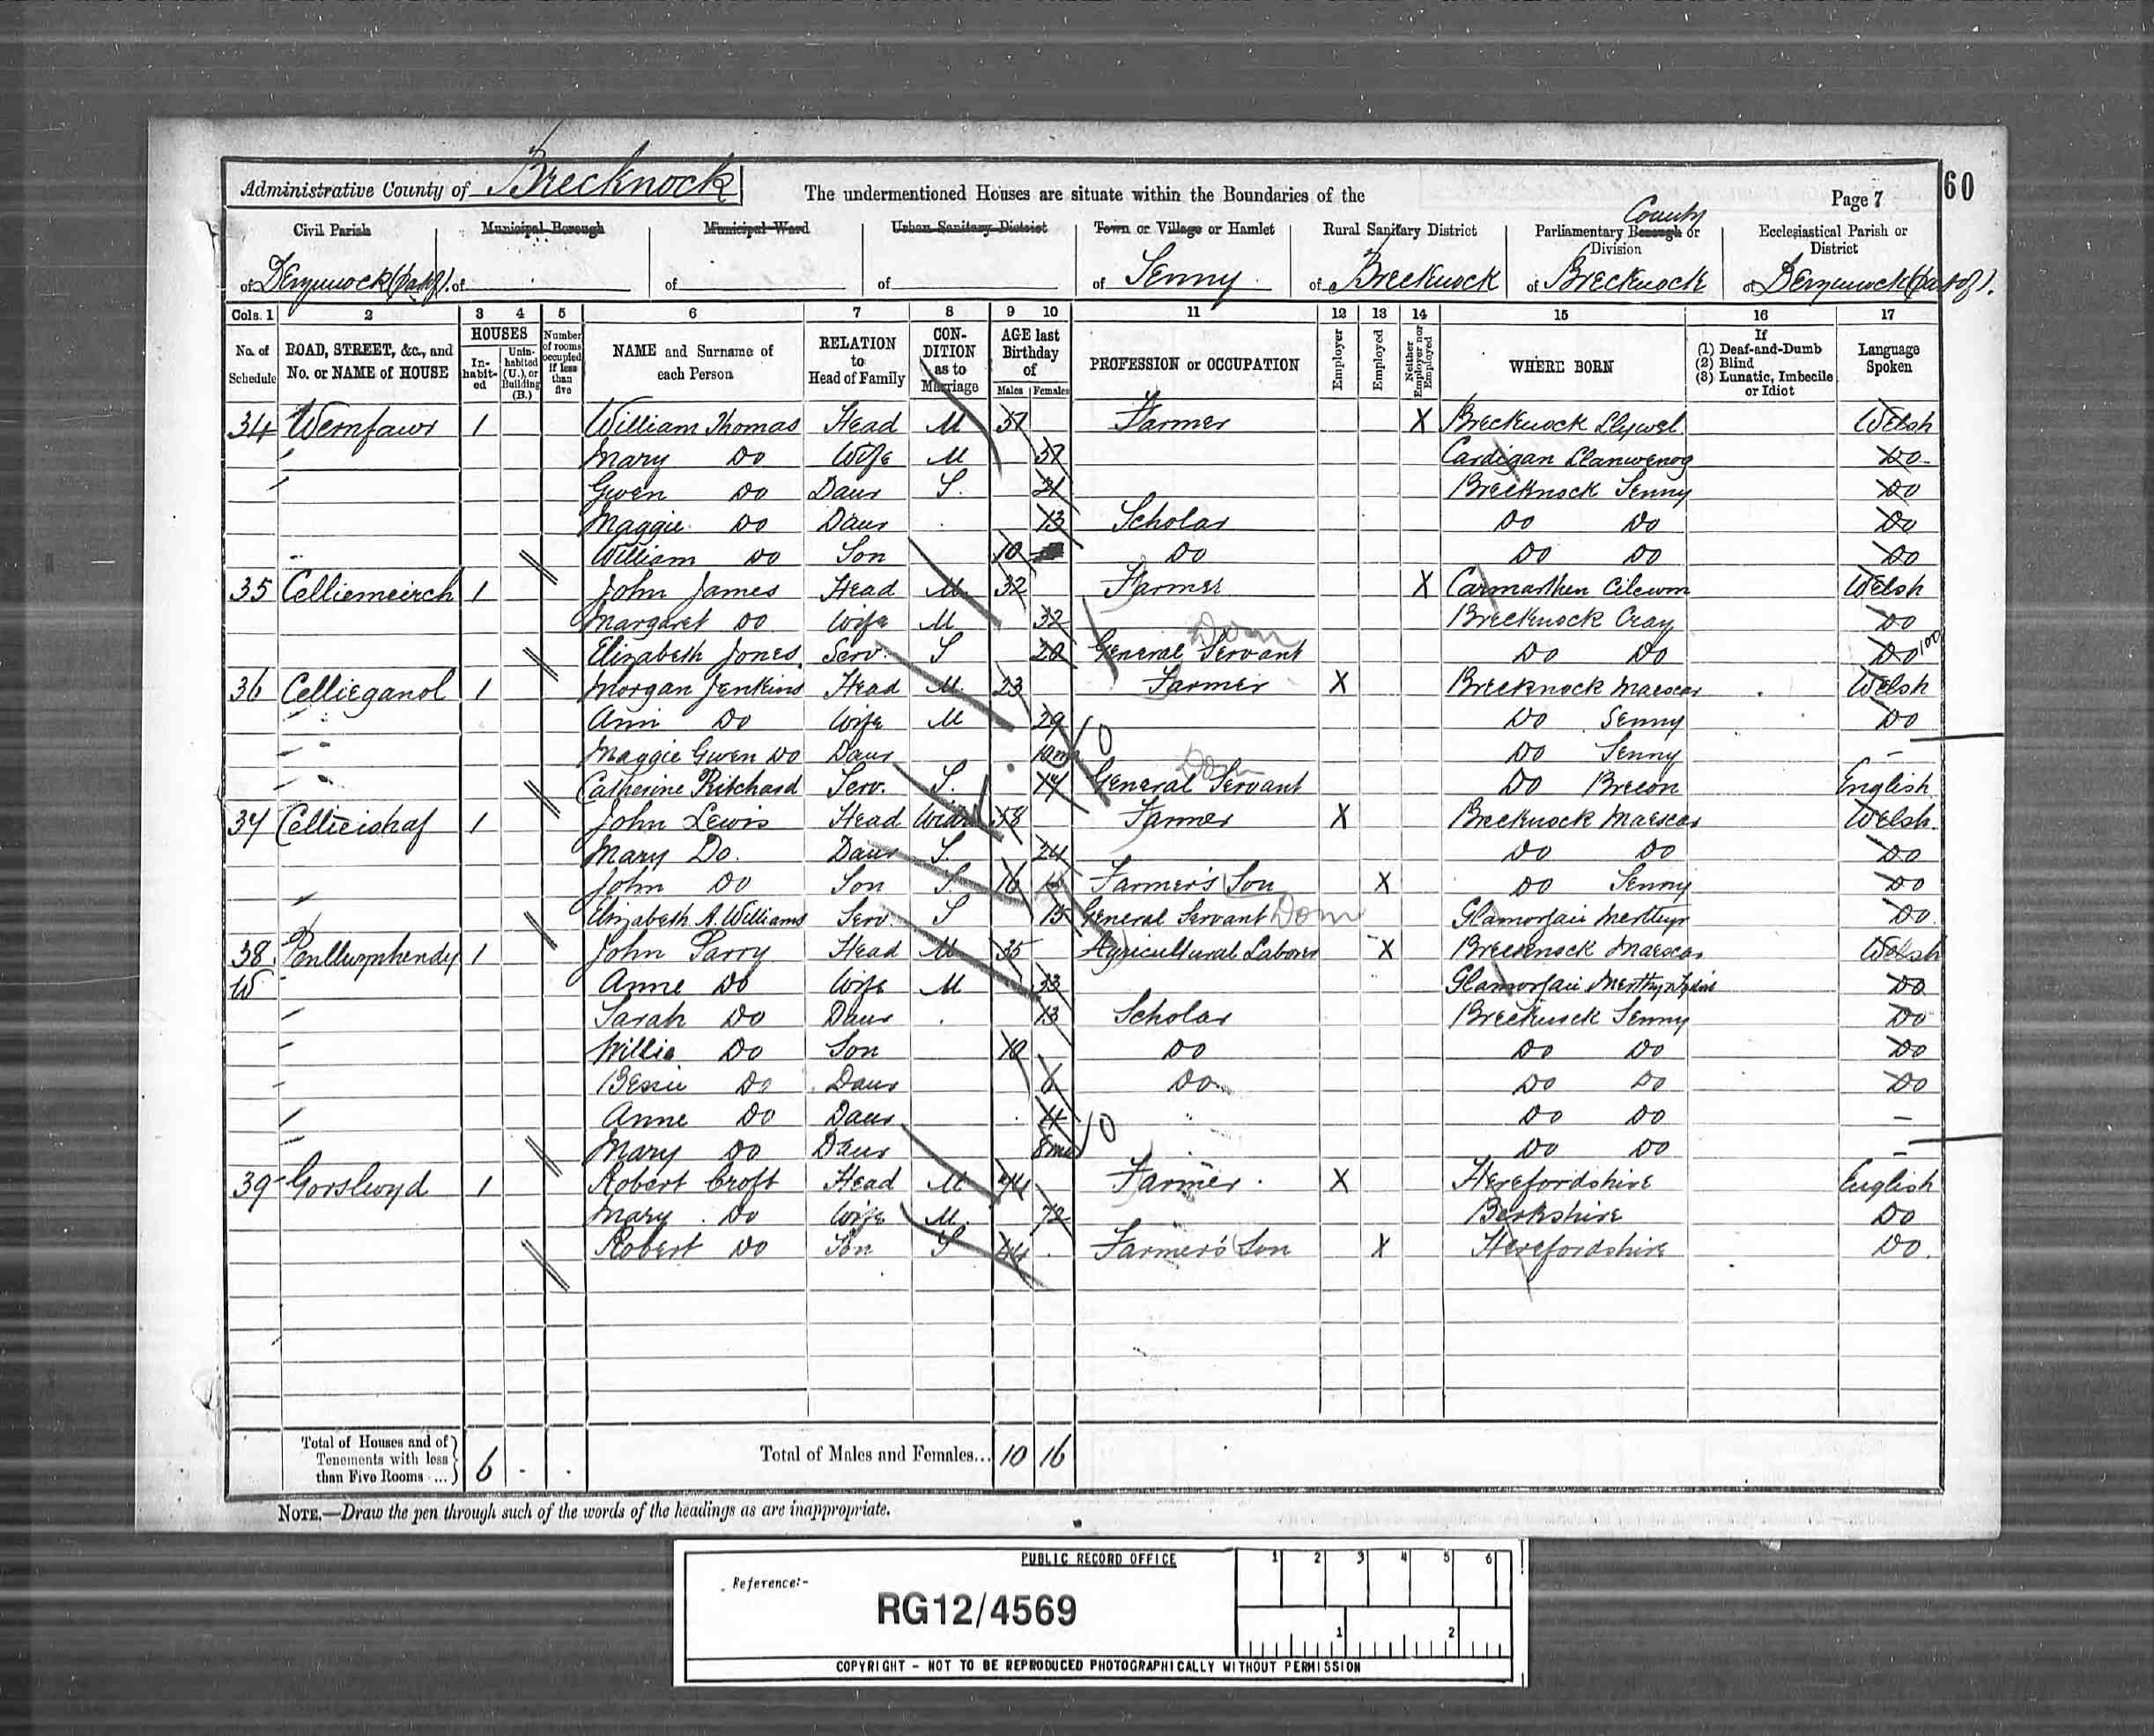 Administrative County of Brecknock The undermentioned Houses are situate within the Boundaries of the Page 7 60
Civil Parish Municipal Borough Municipal Ward Urban Sanitary District Town or Village or Hamlet Rural Sanitary District Parliamentary Borough or County Division Ecclesiastical Parish or District
of Devynnock (part of). of of of of Senny of Brecknock of Brecknock of Devynnock (part of).
Cols. 1 2 3 4 5 6 7 8 9 10 11 12 13 14 15 16 17
No. of Schedule ROAD, STREET, &c., and No. or NAME of HOUSE HOUSES In-habit-ed Unin-habited (U.), or Building (B.) Number of rooms occupied if less than five NAME and Surname of each Person RELATION to Head of Family CON-DITION as to Marriage AGE last Birthday of Males Females PROFESSION or OCCUPATION Employer Employed Neither Employer nor Employed WHERE BORN If (1) Deaf-and-Dumb (2) Blind (3) Lunatic, Imbecile or Idiot Language Spoken
34 Wernfawr 1 William Thomas Head M 37 Farmer X Brecknock Llywel Welsh
Mary Do Wife M 37 Cardigan Llanwenog Do
Gwen Do Daur S. 21 Brecknock Senny Do
Maggie Do Daur 13 Scholar Do Do Do
William Do Son 10 Do Do Do Do
35 Celliemeirch 1 John James Head M 32 Farmer X Carmarthen Cilcwm Welsh
Margaret Do Wife M 32 Brecknock Cray Do
Elizabeth Jones Serv. S 20 General Servant Dom Do Do Do 100
36 Cellieganol 1 Morgan Jenkins Head M 23 Farmer X Brecknock Maescar Welsh
Ann Do Wife M 29 Do Senny Do
Maggie Gwen Do Daur 10m 0 Do Senny -
Catherine Pritchard Serv. S. 14 General Servant Dom Do Brecon English
37 Cellieishaf 1 John Lewis Head Widr 58 Farmer X Brecknock Maescar Welsh
Mary Do. Daur S. 24 Do Do Do
John Do Son S. 16 Farmer's Son X Do Senny Do
Elizabeth A. Williams Serv. S 15 General Servant Dom Glamorgan Merthyr Do
38 Penllwynhendy 1 John Parry Head M 35 Agricultural Laborer X Brecknock Maescar Welsh
W Anne Do Wife M 33 Glamorgan Merthyr Tydvil Do
Sarah Do Daur 13 Scholar Brecknock Senny Do
Willie Do Son 10 Do Do Do Do
Bessie Do Daur 8 Do Do Do Do
Anne Do Daur 4 Do Do -
Mary Do Daur 8mo 0 Do Do -
39 Gorslwyd 1 Robert Croft Head M 74 Farmer X Herefordshire English
Mary Do Wife M. 72 Berkshire Do
Robert Do Son S 44 Farmer's Son X Herefordshire Do
Total of Houses and of Tenements with less than Five Rooms ... 6 Total of Males and Females... 10 16
NOTE.—Draw the pen through such of the words of the headings as are inappropriate.
PUBLIC RECORD OFFICE 1 2 3 4 5 6
Reference:-
RG12/4569
1 2
COPYRIGHT - NOT TO BE REPRODUCED PHOTOGRAPHICALLY WITHOUT PERMISSION